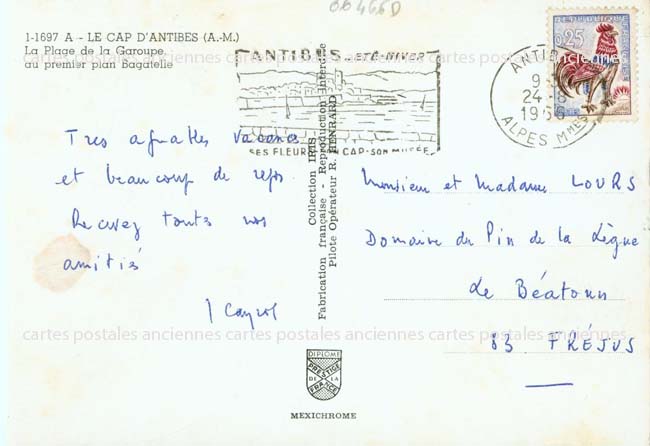 06466D
1-1697 A - LE CAP D'ANTIBES (A.-M.)
La Plage de la Garoupe,
au premier plan Bagatelle
ANTIBES ETÉ-HIVER
SES FLEURS SON CAP-SON MUSÉE
ANTIBES
24-8
ALPES MMES
0,25
Tres agréables vacances
et beaucoup de repos
Recevez toutes nos
amitiés
J Cayrol
Collection IRIS
Fabrication française - Reproduction interdite
Pilote Opérateur R. HENRARD
Monsieur et Madame LOURS
Domaine du Pin de la Lègue
Le Béatoun
83 FRÉJUS
cartes postales anciennes cartes postales anciennes cartes postales anciennes
cartes postales anciennes cartes postales anciennes cartes postales anciennes
DIPLOME
PRESTIGE
DE LA
FRANCE
MEXICHROME